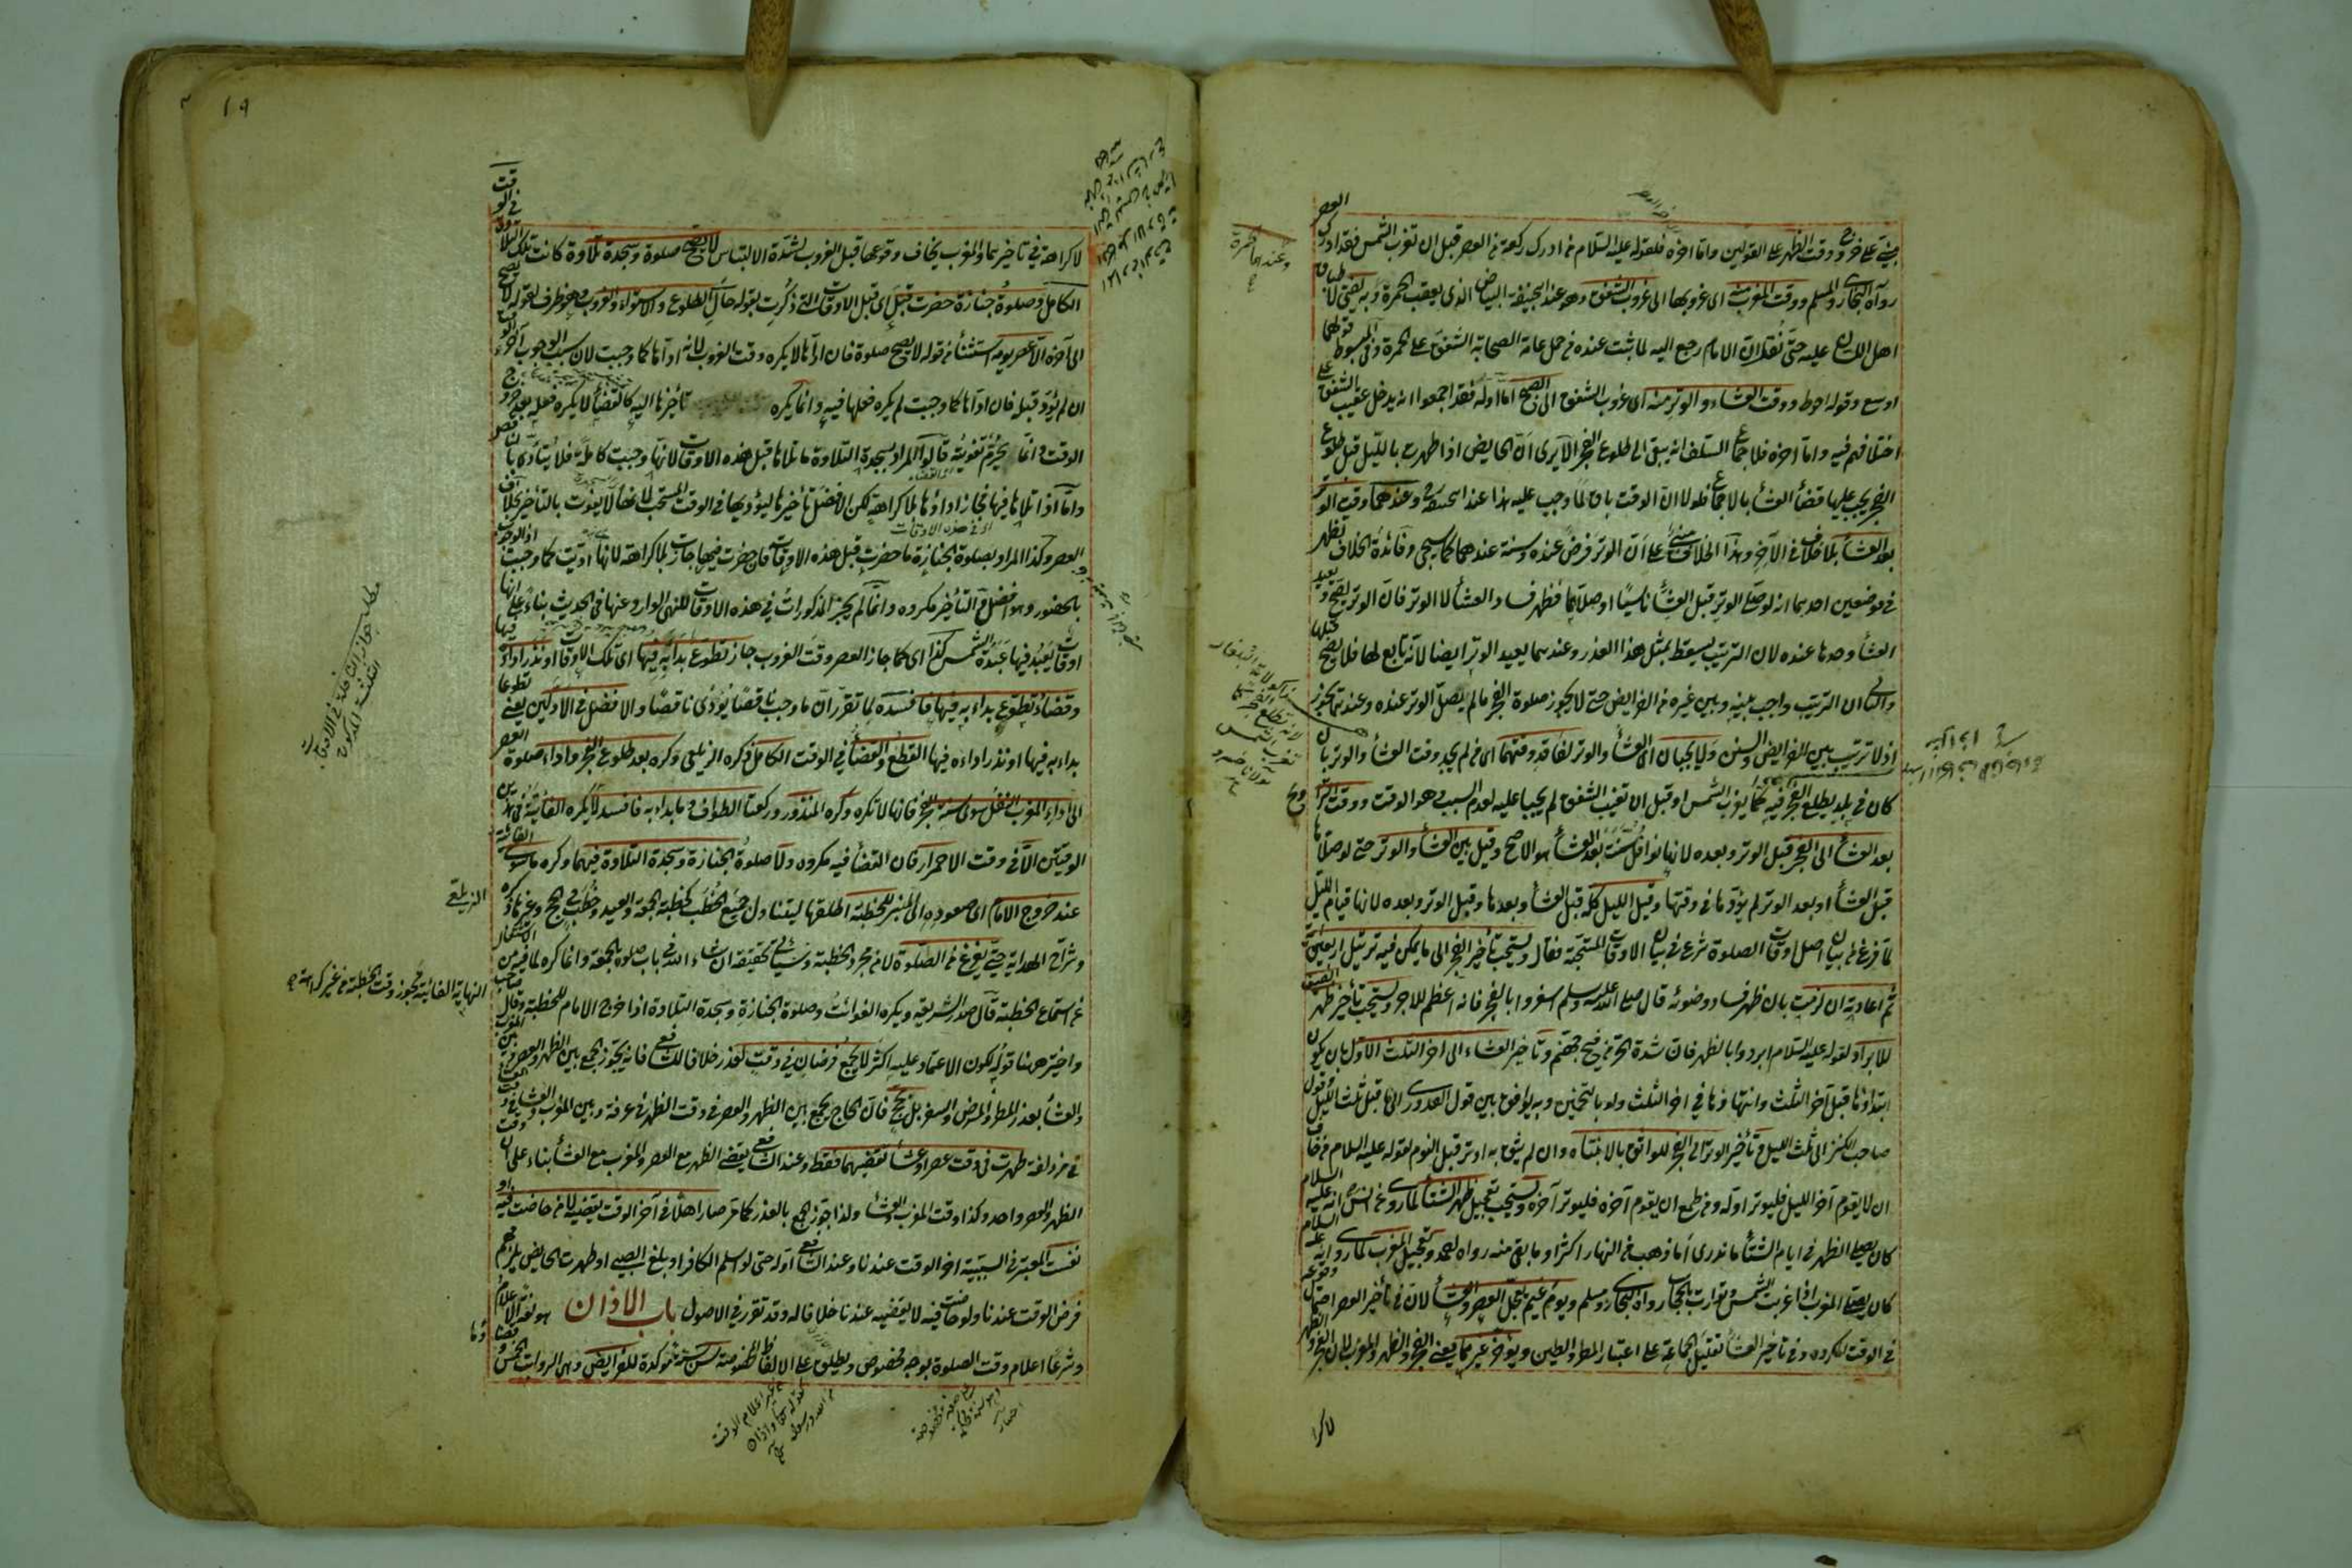 العصر
مبنى على خروج وقت الظهر على القولين واما اخره فلقوله عليه السلام من ادرك ركعة من العصر قبل ان تغرب الشمس فقد ادرك
رواه البخارى والمسلم ووقت المغرب منه اى غروبها الى غروب الشفق وهو عند ابحنيفة البياض الذى يعقب الحمرة وبه يفتى
اهل اللسان عليه حتى نقل ان الامام رجع اليه لما ثبت عنده من حمل عامة الصحابة الشفق على الحمرة وفى المبسوط قولهما
اوسع وقوله احوط ووقت العشاء والوتر منه اى غروب الشفق الى الصبح اما اوله فقد اجمعوا انه يدخل عقيب الشفق على
اختلافهم فيه واما اخره فلاجماع السلف انه يبقى الى طلوع الفجر الا يرى ان الحايض اذا طهرت بالليل قبل طلوع
الفجر يجب عليها قضاء العشاء بالاجماع فلولا ان الوقت باق لما وجب عليه هذا عند ابحنيفة وعندهما وقت الوتر
بعد العشاء بلا خلاف فى الآخر وهذا الخلاف مبنى على ان الوتر فرض عنده وسنة عندهما كما سيجئ وفائدة الخلاف تظهر
فى موضعين احدهما انه لو صلى الوتر قبل العشاء ناسيا او صلاهما فظهر فساد العشاء لا الوتر فان الوتر يصح ويعيد
العشاء وحدها عنده لان الترتيب يسقط بمثل هذا العذر وعندهما يعيد الوتر ايضا لانه تابع لها فلا يصح قبلها
والثانى ان الترتيب واجب بينه وبين غيره من الفرايض حتى لا يجوز صلوة الفجر ما لم يصل الوتر عنده وعندهما يجوز
اذ لا ترتيب بين الفرايض والسنن ولا يجبان اى العشاء والوتر لفاقد وقتهما اى من لم يجد وقت العشاء والوتر بان
كان فى بلد يطلع الفجر فيه كما يغرب الشمس او قبل ان تغيب الشفق لم يجبا عليه لعدم السبب وهو الوقت ووقت التراويح
بعد العشاء الى الفجر قبل الوتر وبعده لانها نوافل سنت بعد العشاء هو الاصح وقيل بين العشاء والوتر حتى لو صلاها
قبل العشاء او بعد الوتر لم يؤدها فى وقتها وقيل الليل كله قبل العشاء وبعدها وقبل الوتر وبعده لانها قيام الليل
لما فرغ من بيان اصل اوقات الصلوة شرع فى بيان الاوقات المستحبة فقال ويستحب تأخير الفجر الى ما يمكن فيه ترتيل اربعين آية
ثم اعادته ان لزمت بان ظهر فساد وضوئه قال صلى الله عليه وسلم اسفروا بالفجر فانه اعظم للاجر ويستحب تأخير ظهر الصيف
للابراد لقوله عليه السلام ابردوا بالظهر فان شدة الحر من فيح جهنم وتأخير العشاء الى اخر الثلث الاول بان يكون
ابتداؤها قبل آخر الثلث وانتهاؤها فى اخر الثلث ولو بالتخمين وبه يوافق بين قول القدورى الى ما قبل ثلث الليل وقول
صاحب الكنز الى ثلث الليل وتأخير الوتر الى الفجر للواثق بالانتباه وان لم يثق به اوتر قبل النوم لقوله عليه السلام من خاف
ان لا يقوم آخر الليل فليوتر اوله ومن طمع ان يقوم آخره فليوتر آخره ويستحب تعجيل ظهر الشتاء لما روى عن انس انه عليه السلام
كان يصلى الظهر فى ايام الشتاء ما ندرى أما ذهب من النهار اكثر او ما بقى منه رواه احمد وتعجيل المغرب لما روى انه عليه السلام
كان يصلى المغرب اذا غربت الشمس وتوارت بالحجاب رواه البخارى ومسلم ويوم غيم يعجل العصر والعشاء لان فى تأخير العصر احتمال وقوعه
فى الوقت المكروه وفى تأخير العشاء تقليل الجماعة على اعتبار المطر والطين ويؤخر غيرهما يعنى الفجر والظهر والمغرب لان الفجر والظهر
لا كرا
١٩
لا كراهة فى تأخيرهما والمغرب يخاف وقوعها قبل الغروب لشدة الالتباس لا يصح صلوة وسجدة تلاوة كانت تلك التلاوة فى الوقت
الكامل وصلوة جنازة حضرت قبل اى قبل الاوقات التى ذكرت بقوله حال الطلوع والاستواء والغروب وهو ظرف لقوله لا يصح
الى آخره الا عصر يومه استثناء من قوله لا يصح صلوة فان اداءها لا يكره وقت الغروب لانه اداها كما وجبت لان سبب الوجوب آخر الوقت
ان لم يؤد قبله فان اداها كما وجبت لم يكره فعلها فيه وانما يكره تأخيرها اليه كالقضاء لا يكره فعله بعد خروج
الوقت وانما يحرم تفويته قالوا المراد بسجدة التلاوة ما تلاها قبل هذه الاوقات لانها وجبت كاملة فلا يتأدى بالناقص
واما اذا تلاها فيها فجاز اداؤها بلا كراهة لكن الافضل تأخيرها ليؤديها فى الوقت المستحب لانها لا يفوت بالتأخير بخلاف
العصر وكذا المراد بصلوة الجنازة ما حضرت قبل هذه الاوقات فان حضرت فيها جازت بلا كراهة لانها اديت كما وجبت اذ الوجوب
بالحضور وهو افضل والتأخير مكروه وانما لم يجز المذكورات فى هذه الاوقات للنهى الوارد عنها فى الحديث بناء على انها
اوقات يعبد فيها عبدة الشمس كذا اى كما جاز العصر وقت الغروب جاز تطوع بدأ به فيها اى تلك الاوقات او نذر اداؤه فيها
وقضاء تطوع بداء به فيها فافسده لما تقرر ان ما وجب ناقصا يؤدى ناقصا والافضل فى الاولين يعنى تطوعا
بداء به فيها او نذر اداءه فيها القطع والقضاء فى الوقت الكامل ذكره الزيلعى وكره بعد طلوع الفجر واداء صلوة العصر
الى اداء المغرب النفل سوى سنة الفجر فانها لا تكره وكره المنذور وركعتا الطواف وما بداء به فافسده لا يكره الفائتة فى هذين
الوقتين الا فى وقت الاحمرار فان القضاء فيه مكروه ولا صلوة الجنازة وسجدة التلاوة فيهما وكره ما سوى الفائتة
عند خروج الامام اى صعوده الى المنبر للخطبة اطلقها ليتناول جميع الخطب كخطبة الجمعة والعيد وخطب فى الحج وغيرها ذكره
الزيلعى
وشراح الهداية حتى يفرغ من الصلوة لا من مجرد الخطبة وسيأتى تحقيقه ان شاء الله فى باب صلوة الجمعة وانما كره لما فيه من الاشتغال
عن استماع الخطبة قال صدر الشريعة ويكره الفوائت وصلوة الجنازة وسجدة التلاوة اذا خرج الامام للخطبة وقال صاحب
النهاية الفائتة يجوز وقت الخطبة من غير كراهة
واختير ههنا قوله لكون الاعتماد عليه اكثر لا يجمع فرضان فى وقت لعذر خلافا للشافعى فانه يجوز الجمع بين الظهر والعصر وبين المغرب
والعشاء بعذر المطر والمرض والسفر بل بحج فان الحاج يجمع بين الظهر والعصر فى وقت الظهر فى عرفة وبين المغرب والعشاء فى وقت العشاء
فى مزدلفة طهرت فى وقت عصر او عشاء تقضيهما فقط وعند الشافعى يقضى الظهر مع العصر والمغرب مع العشاء بناء على ان وقت
الظهر والعصر واحد وكذا وقت المغرب والعشاء ولذا جوز الجمع بالعذر كما مر صار اهلا فى آخر الوقت يقضيه لا من حاضت فيه او
نفست المعتبر فى السببية اخر الوقت عندنا وعند الشافعى اوله حتى لو اسلم الكافر او بلغ الصبى او طهرت الحايض يلزمهم
فرض الوقت عندنا ولو حاضت فيه لا يقضيه عندنا خلافا له وقد تقرر فى الاصول باب الاذان هو لغة الاعلام
وشرعا اعلام وقت الصلوة بوجه مخصوص ويطلق على الالفاظ المخصوصة سن سنة مؤكدة للفرايض وهى الرواتب الخمس وقضاؤها